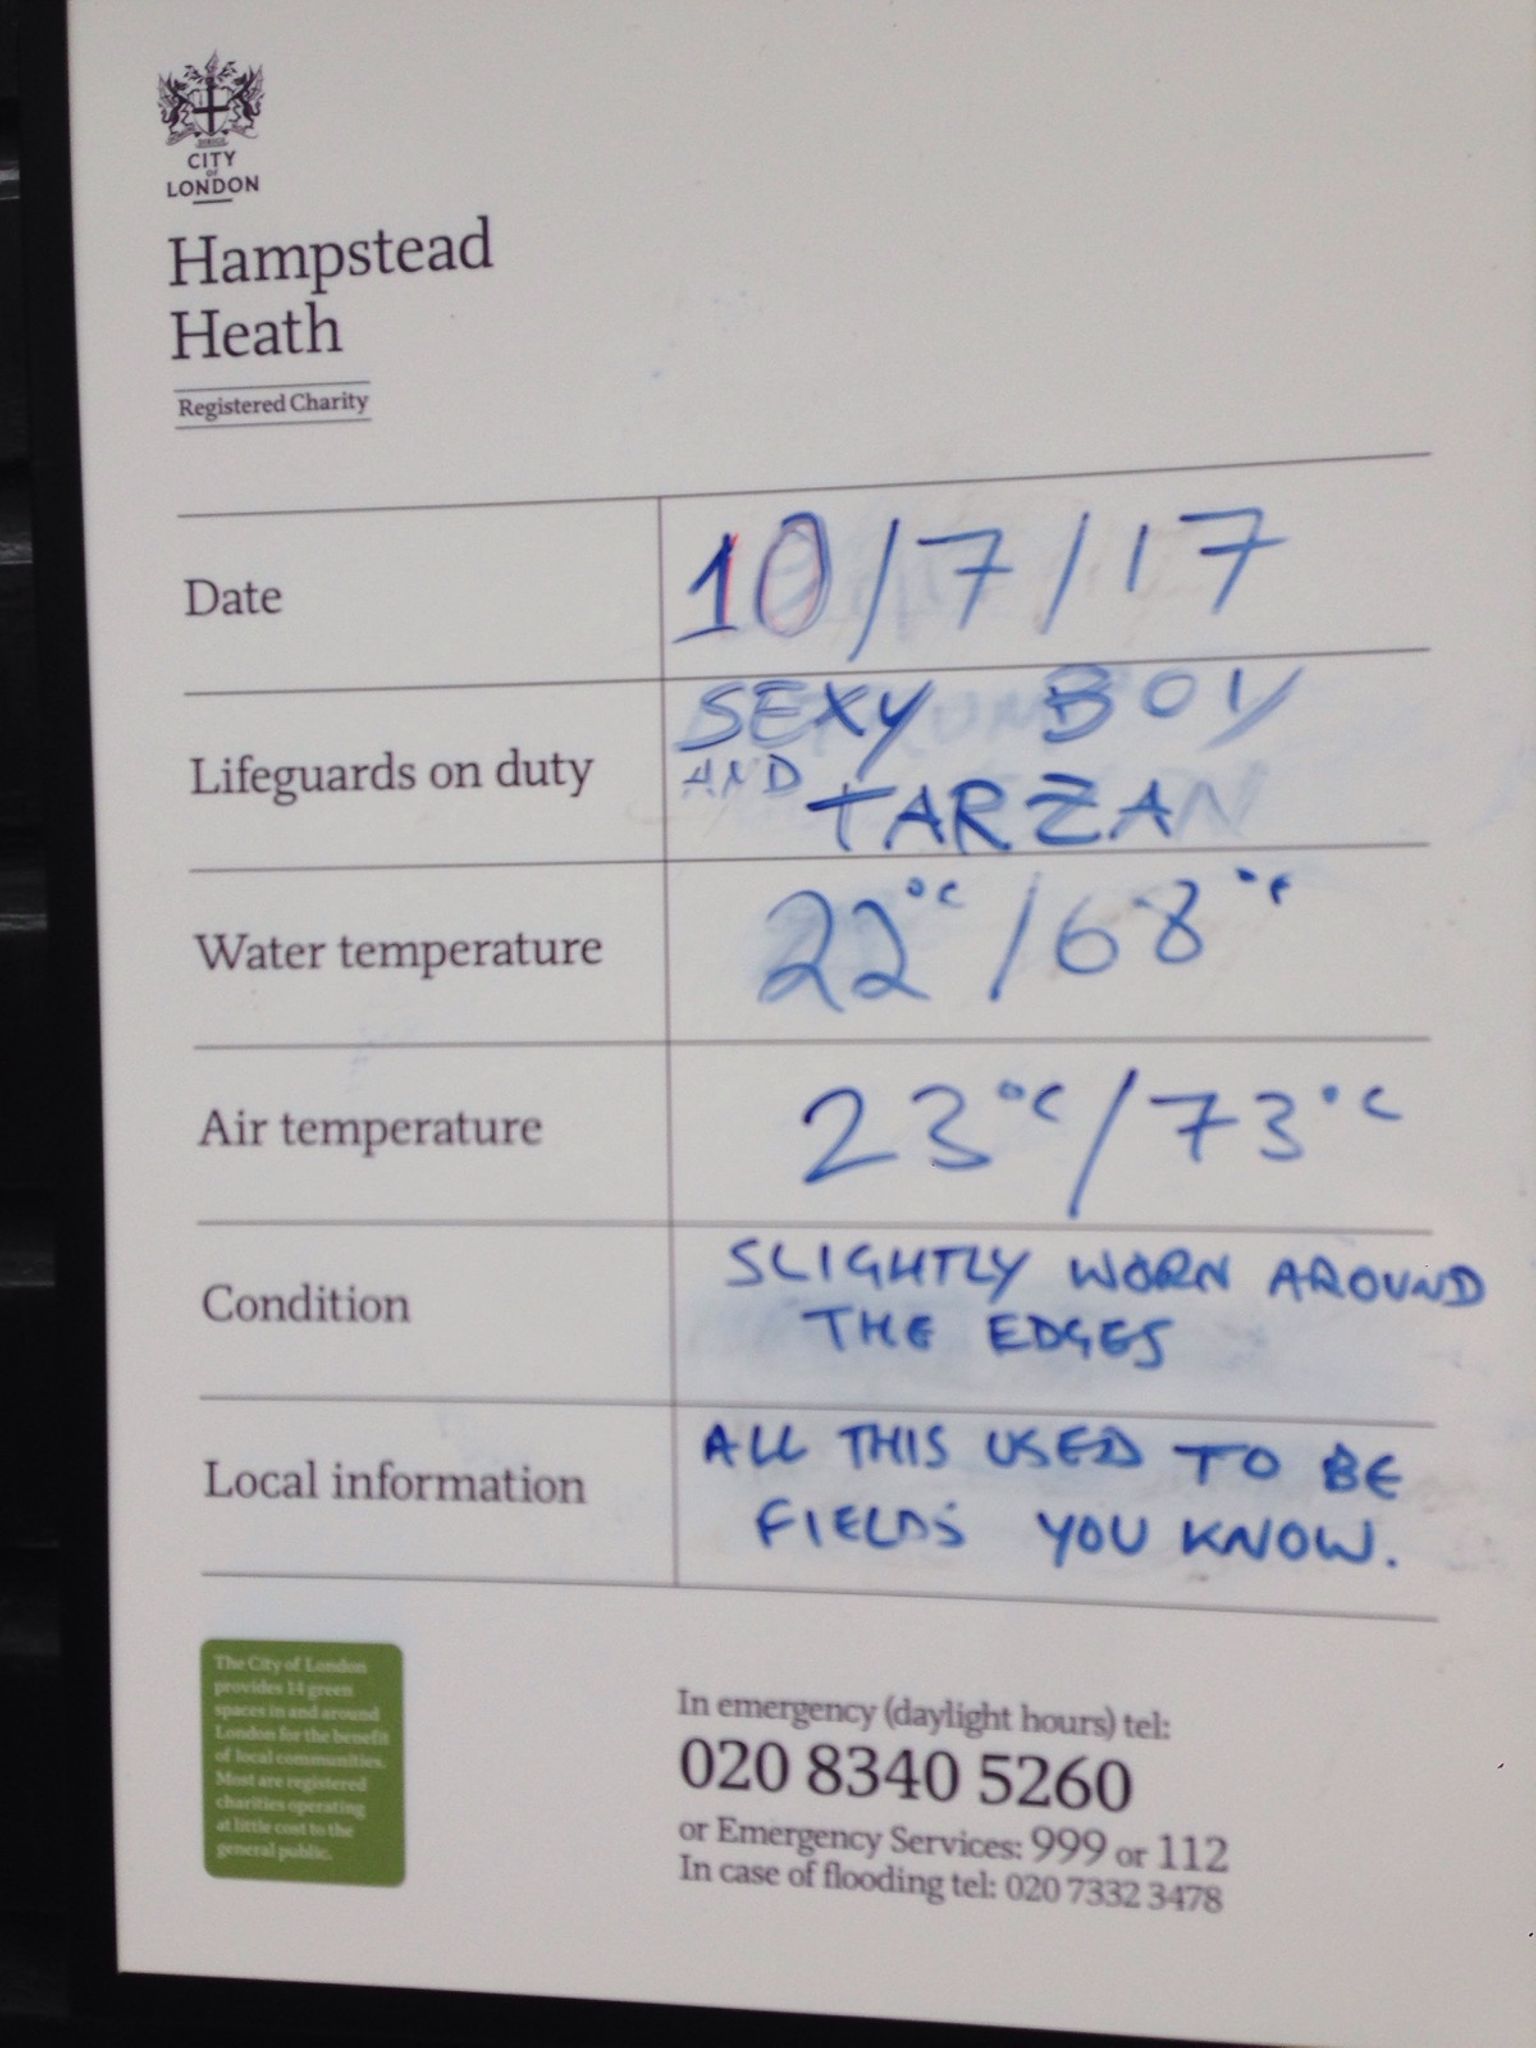 CITY
OF
LONDON
Hampstead
Heath
Registered Charity
Date 10/7/17
Lifeguards on duty SEXY BOY
AND TARZAN
Water temperature 22°C/68°F
Air temperature 23°C/73°C
Condition SLIGHTLY WORN AROUND
THE EDGES
Local information ALL THIS USED TO BE
FIELDS YOU KNOW.
The City of London
provides 14 green
spaces in and around
London for the benefit
of local communities.
Most are registered
charities operating
at little cost to the
general public.
In emergency (daylight hours) tel:
020 8340 5260
or Emergency Services: 999 or 112
In case of flooding tel: 020 7332 3478